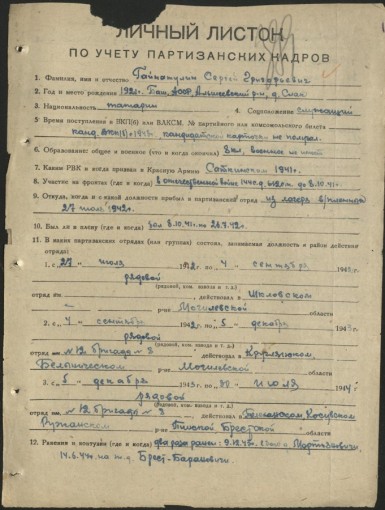 ЛИЧНЫЙ ЛИСТОК
ПО УЧЕТУ ПАРТИЗАНСКИХ КАДРОВ
1. Фамилия, имя и отчество Гайнатулин Сергей Григорьевич
2. Год и место рождения 1921г. Баш. АССР,
3. Национальность татарин 4. Соцположение служащий
5. Время поступления в ВКП(б) или ВЛКСМ, № партийного или комсомольского билета
канд. ВКП(б) кандидатск. карточки не
6. Образование: общее и военное (что и когда окончил)
7. Каким РВК и когда призван в Красную Армию 1941г.
8. Участие на фронтах (где и когда) в отечественной войне до 8.10.41г.
9. Откуда, когда и в какой должности прибыл в партизанский отряд из лагеря в/пленных
27 июля 1942г.
10. Был ли в плену (где и когда) был 8.10.41г. по
11. В каких партизанских отрядах (или группах) состоял, занимаемая должность и район действия
отряда:
1. с 27 июля 1942 г. по 4 сентября 194
рядовой
(рядовой, ком. взвода и т. д.)
отряд им. — , действовала в Шкловском
— р-не Могилевской области
2. с 4 сентября 1942 г. по 5 декабря 1943 г.
рядовой
(рядовой, ком. взвода и т. д.)
отряд им. №12 бригада №8 , действовала в Круглянском
Белыничском р-не Могилевской области
3. с 5 декабря 1943 г. по июля 194
рядовой
(рядовой, ком. взвода и т. д.)
отряд им. №12 бригада №8 , действовала Косувском
Ружанском р-не Пинской Брестской области
12. Ранения и контузии (где и когда) два раза ранен: 9.12.42г.
14.6.44г. на ж.д. Брест-Барановичи